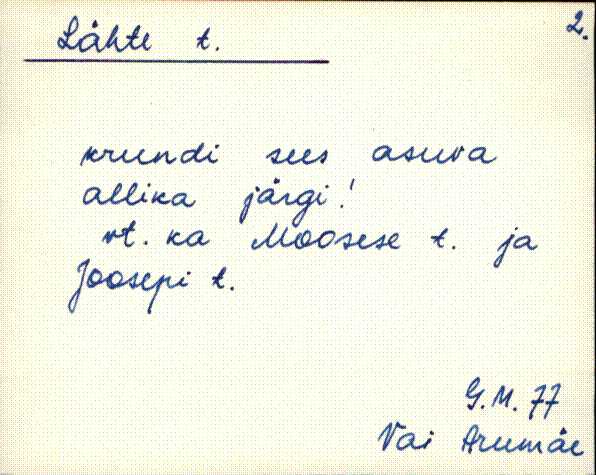 Lähte t.
2.
krundi sees asuva
allika järgi!
vt. ka Moosese t. ja
Joosepi t.
G.M. 77
Vai Arumäe